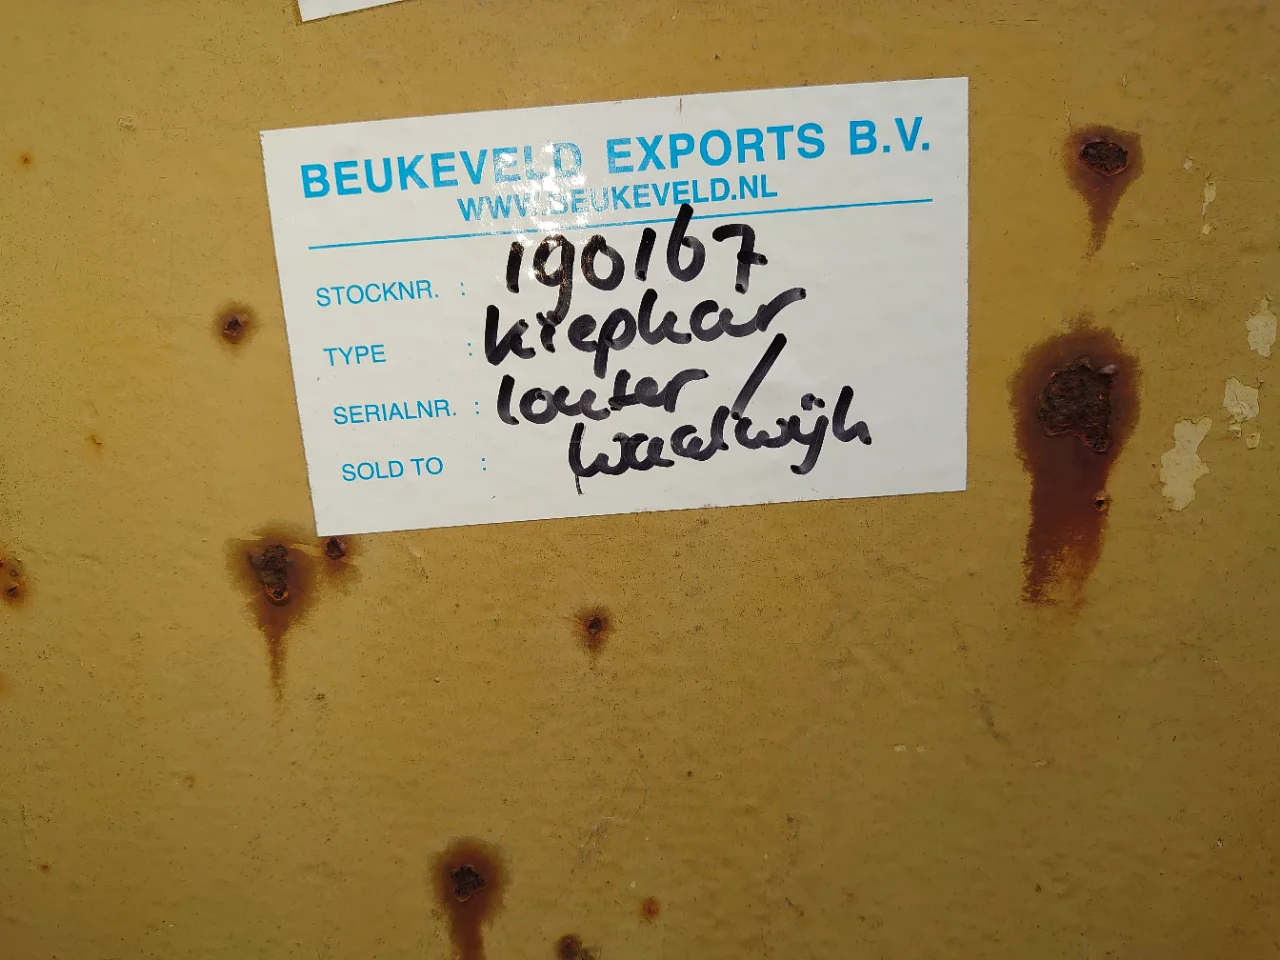 BEUKEVELD EXPORTS B.V.
WWW.BEUKEVELD.NL
STOCKNR. : 190167
TYPE : kiepkar
SERIALNR. : louter /
SOLD TO : waalwijk